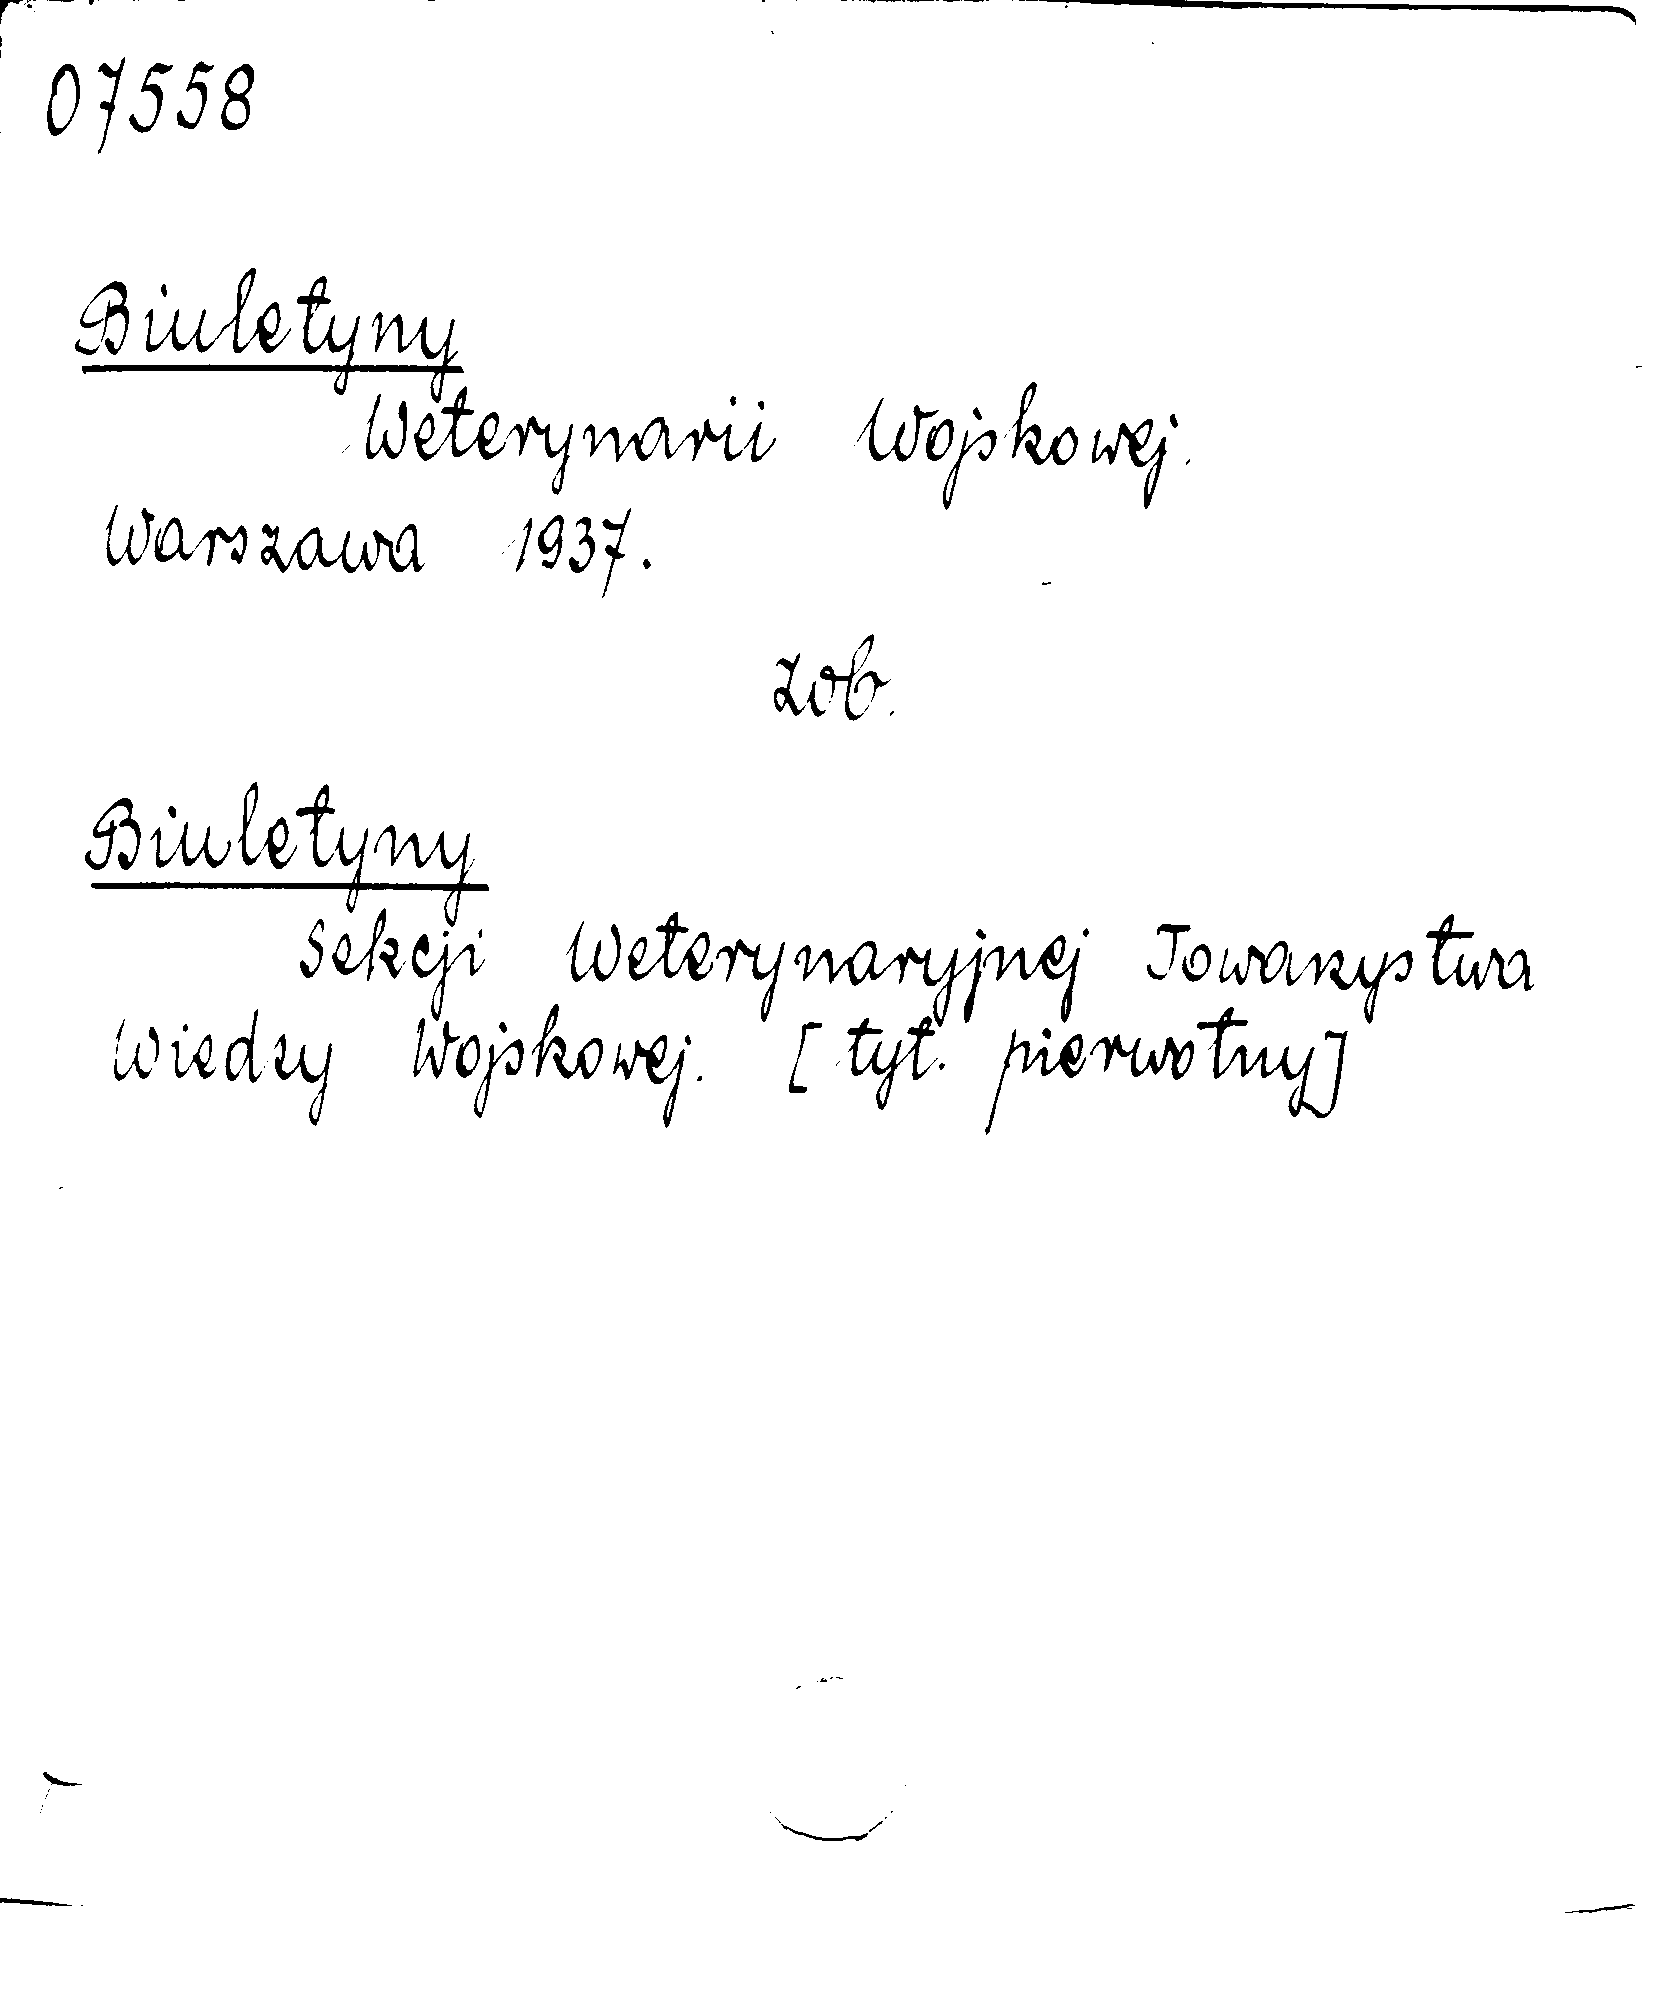 07558
Biuletyny
Weterynarii Wojskowej.
Warszawa 1937.
zob.
Biuletyny
Sekcji Weterynaryjnej Towarzystwa
Wiedzy Wojskowej. [tyt. pierwotny]